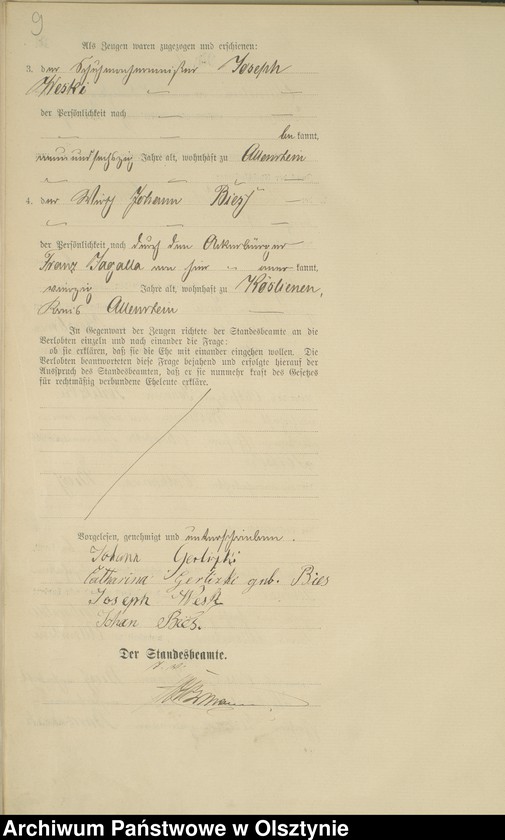 9
Als Zeugen waren zugezogen und erschienen:
3. der Schuhmachermeister Joseph
Weski
der Persönlichkeit nach
be kannt,
neunundsechszig Jahre alt, wohnhaft zu Allenstein
4. der Wirth Johann Bies
der Persönlichkeit nach durch den Ackerbürger
Franz Jagalla von hier aner kannt,
vierzig Jahre alt, wohnhaft zu Köslienen,
Kreis Allenstein
In Gegenwart der Zeugen richtete der Standesbeamte an die
Verlobten einzeln und nach einander die Frage:
ob sie erklären, daß sie die Ehe mit einander eingehen wollen. Die
Verlobten beantworteten diese Frage bejahend und erfolgte hierauf der
Ausspruch des Standesbeamten, daß er sie nunmehr kraft des Gesetzes
für rechtmäßig verbundene Eheleute erkläre.
Vorgelesen, genehmigt und unterschrieben.
Johann Gerlizki
Catharina Gerlizki geb. Bies
Joseph Weski
Johan Bies.
Der Standesbeamte.
Archiwum Państwowe w Olsztynie